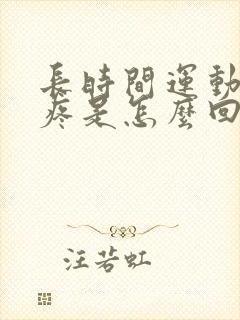 長時間運動
疼是怎麼回
汪若虹